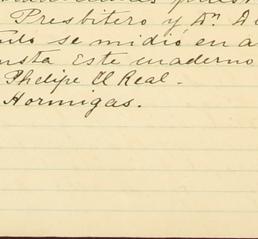 Presbitero y Dn.
se midió en a
este cuaderno
Phelipe El Real.
Hormigas.